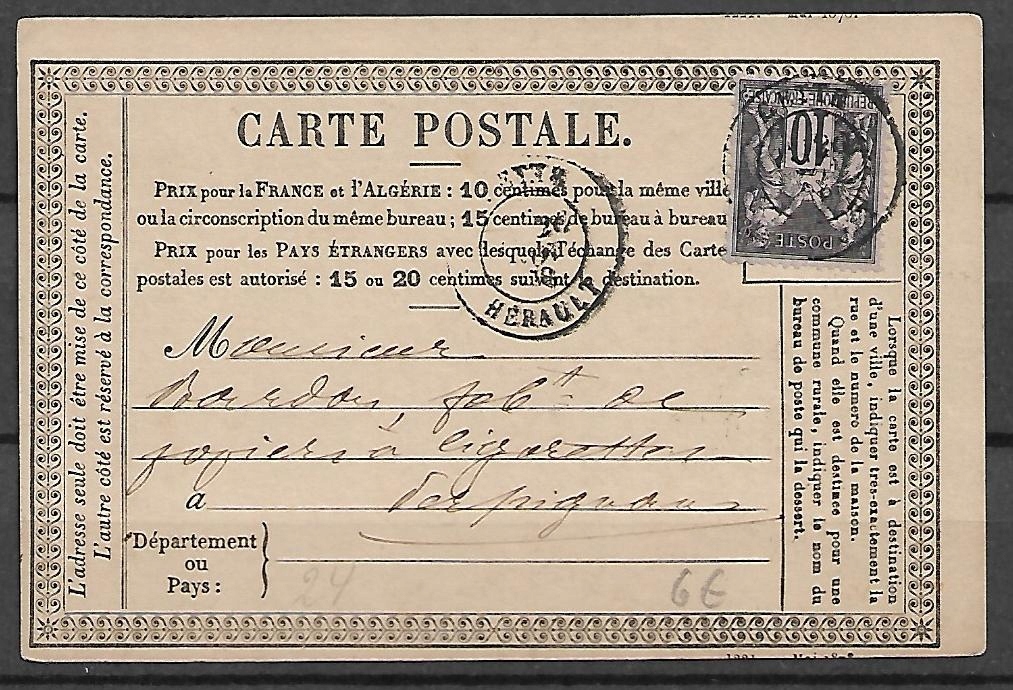 CARTE POSTALE.
PRIX pour la FRANCE et l'ALGÉRIE : 10 centimes pour la même ville
ou la circonscription du même bureau ; 15 centimes de bureau à bureau
PRIX pour les PAYS ÉTRANGERS avec lesquels l'échange des Carte
postales est autorisé : 15 ou 20 centimes suivant destination.
Monsieur
Bardou, fabt de
papiers à cigarettes
a Perpignan
Département
ou
Pays :
24
6€
L'adresse seule doit être mise de ce côté de la carte.
L'autre côté est réservé à la correspondance.
Lorsque la carte est à destination
d'une ville, indiquer très-exactement la
rue et le numero de la maison.
Quand elle est destinée pour une
commune rurale, indiquer le nom du
bureau de poste qui la dessert.
REPUBLIQUE FRANÇAISE
10
POSTE
CETTE
HÉRAULT